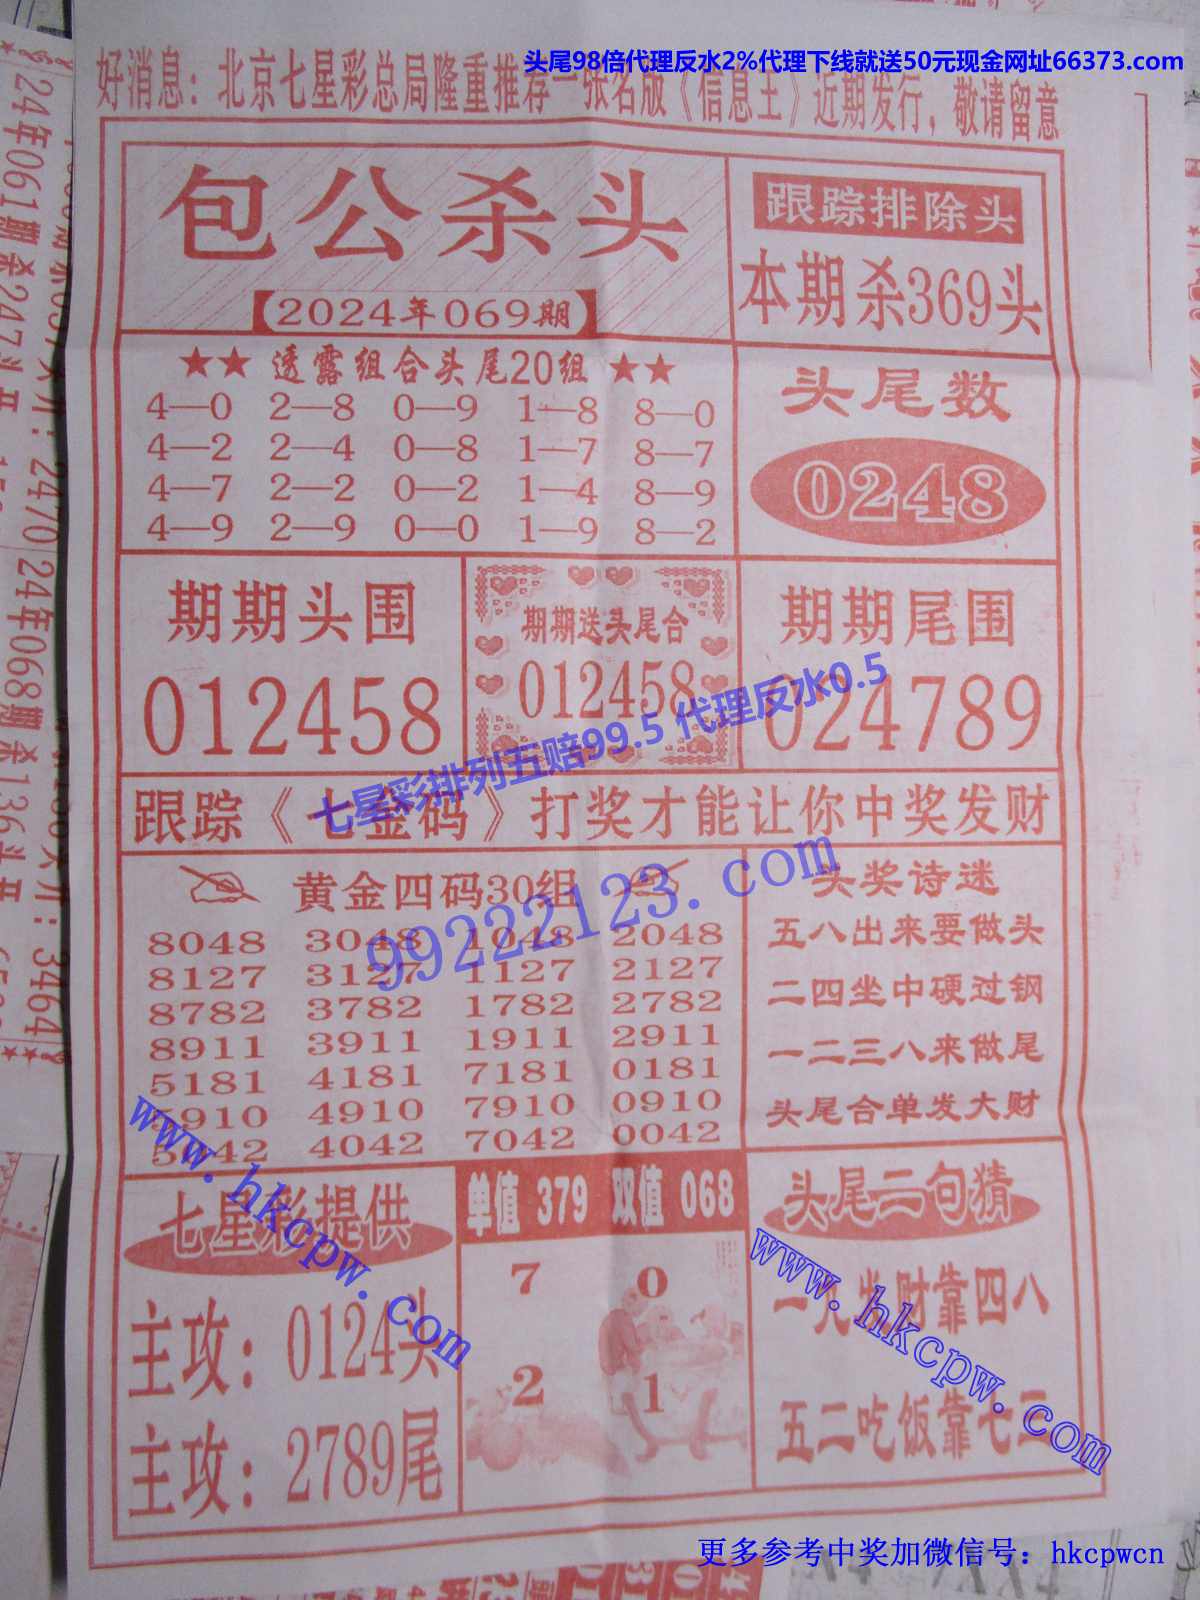 头尾98倍代理反水2%代理下线就送50元现金网址66373.com
好消息：北京七星彩总局隆重推荐一张名版《信息王》近期发行，敬请留意
包公杀头
【2024年069期】
跟踪排除头
本期杀369头
★★ 透露组合头尾20组 ★★
4—0 2—8 0—9 1—8 8—0
4—2 2—4 0—8 1—7 8—7
4—7 2—2 0—2 1—4 8—9
4—9 2—9 0—0 1—9 8—2
头尾数
0248
期期头围
012458
期期送头尾合
012458
期期尾围
024789
七星彩排列五赔99.5 代理反水0.5
跟踪《七金码》打奖才能让你中奖发财
99222123.com
黄金四码30组
8048 3048 1048 2048
8127 3127 1127 2127
8782 3782 1782 2782
8911 3911 1911 2911
5181 4181 7181 0181
5910 4910 7910 0910
5042 4042 7042 0042
头奖诗迷
五八出来要做头
二四坐中硬过钢
一二三八来做尾
头尾合单发大财
www.hkcpw.com
七星彩提供
主攻：0124头
主攻：2789尾
单值 379 双值 068
7 0
2 1
头尾二句猜
一九发财靠四八
五二吃饭靠七三
www.hkcpw.com
24年061期杀247头开：2470
24年068期杀136头开：3464
更多参考中奖加微信号：hkcpwcn